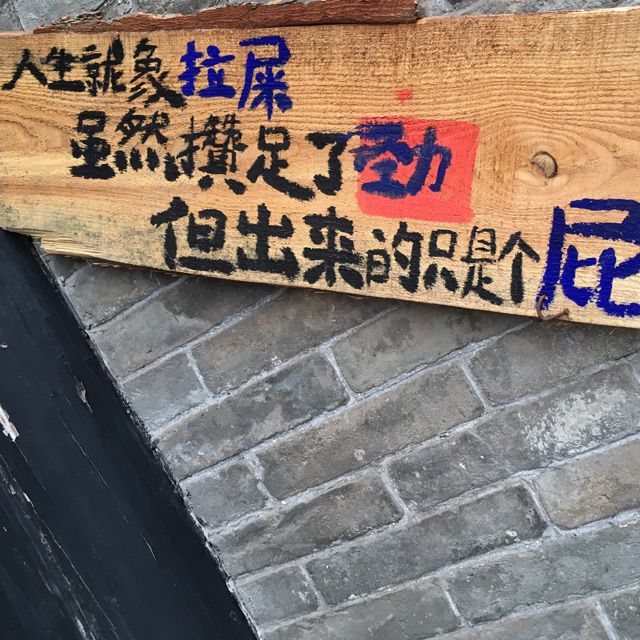 人生就象拉屎
虽然攢足了劲
但出来的只是个屁